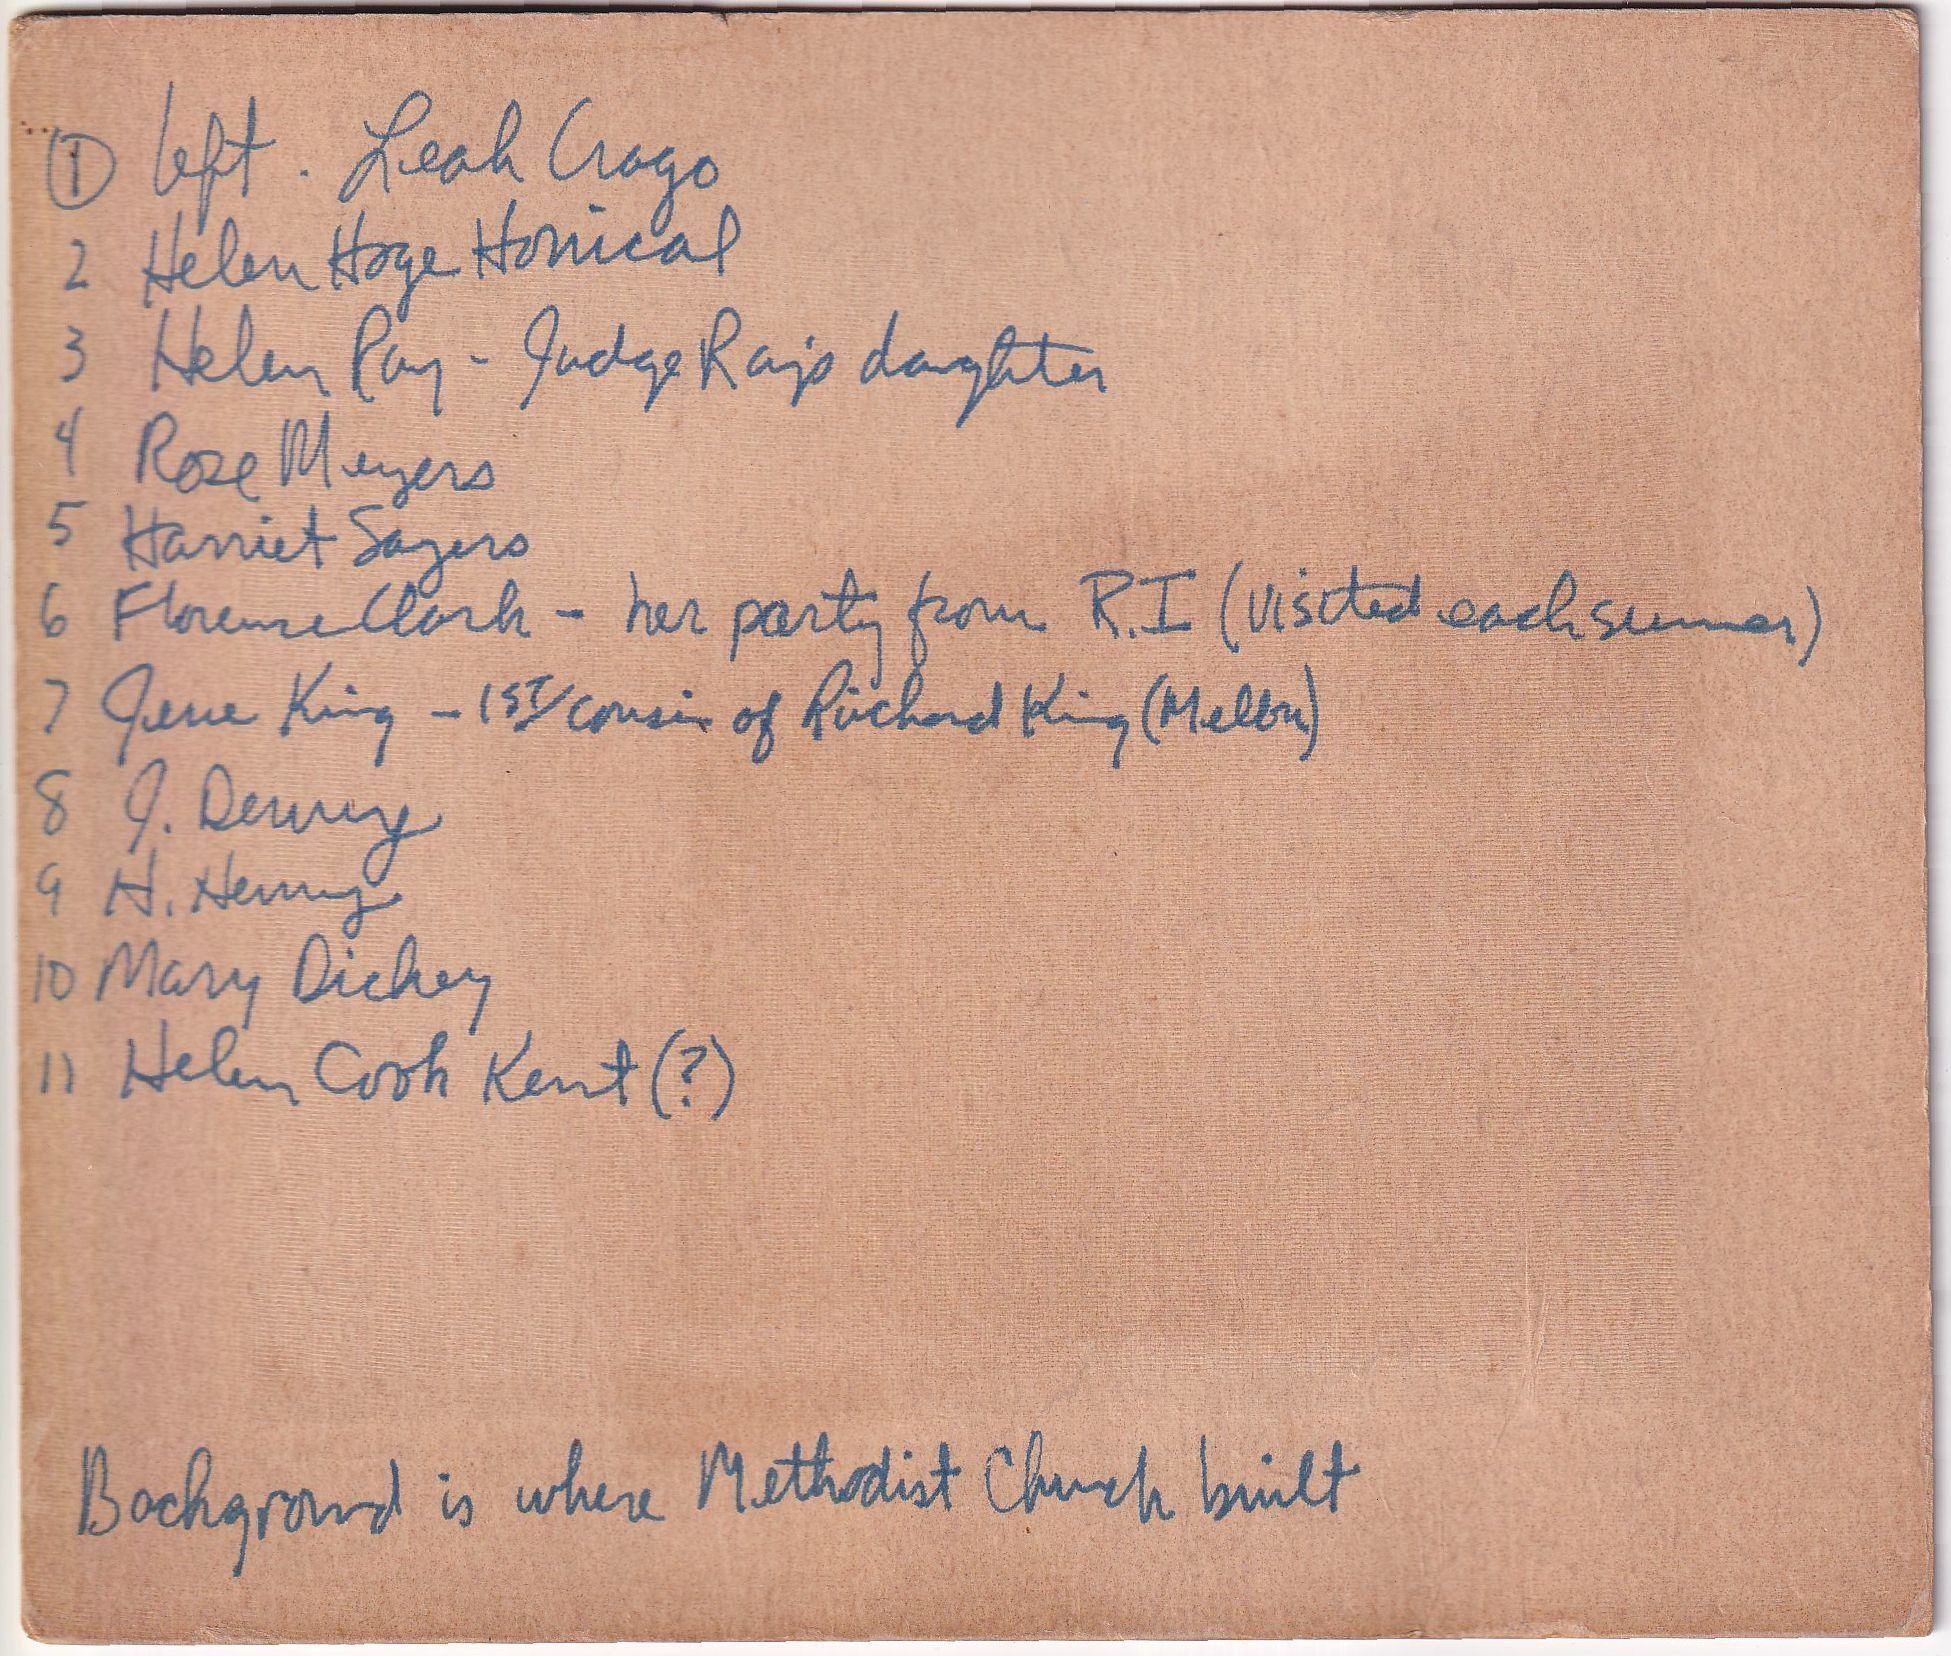 ① left. Leah Crago
2 Helen Hoge Honical
3 Helen Ray - Judge Ray's daughter
4 Rose Meyers
5 Harriet Sayers
6 Florence Clark - her party from R.I (visited each summer)
7 King - 1ST cousin of Richard King
8 J. Denny
9 H. Henry
10 Mary Dickey
11 Helen Cook Kent (?)
Background is where Methodist Church built